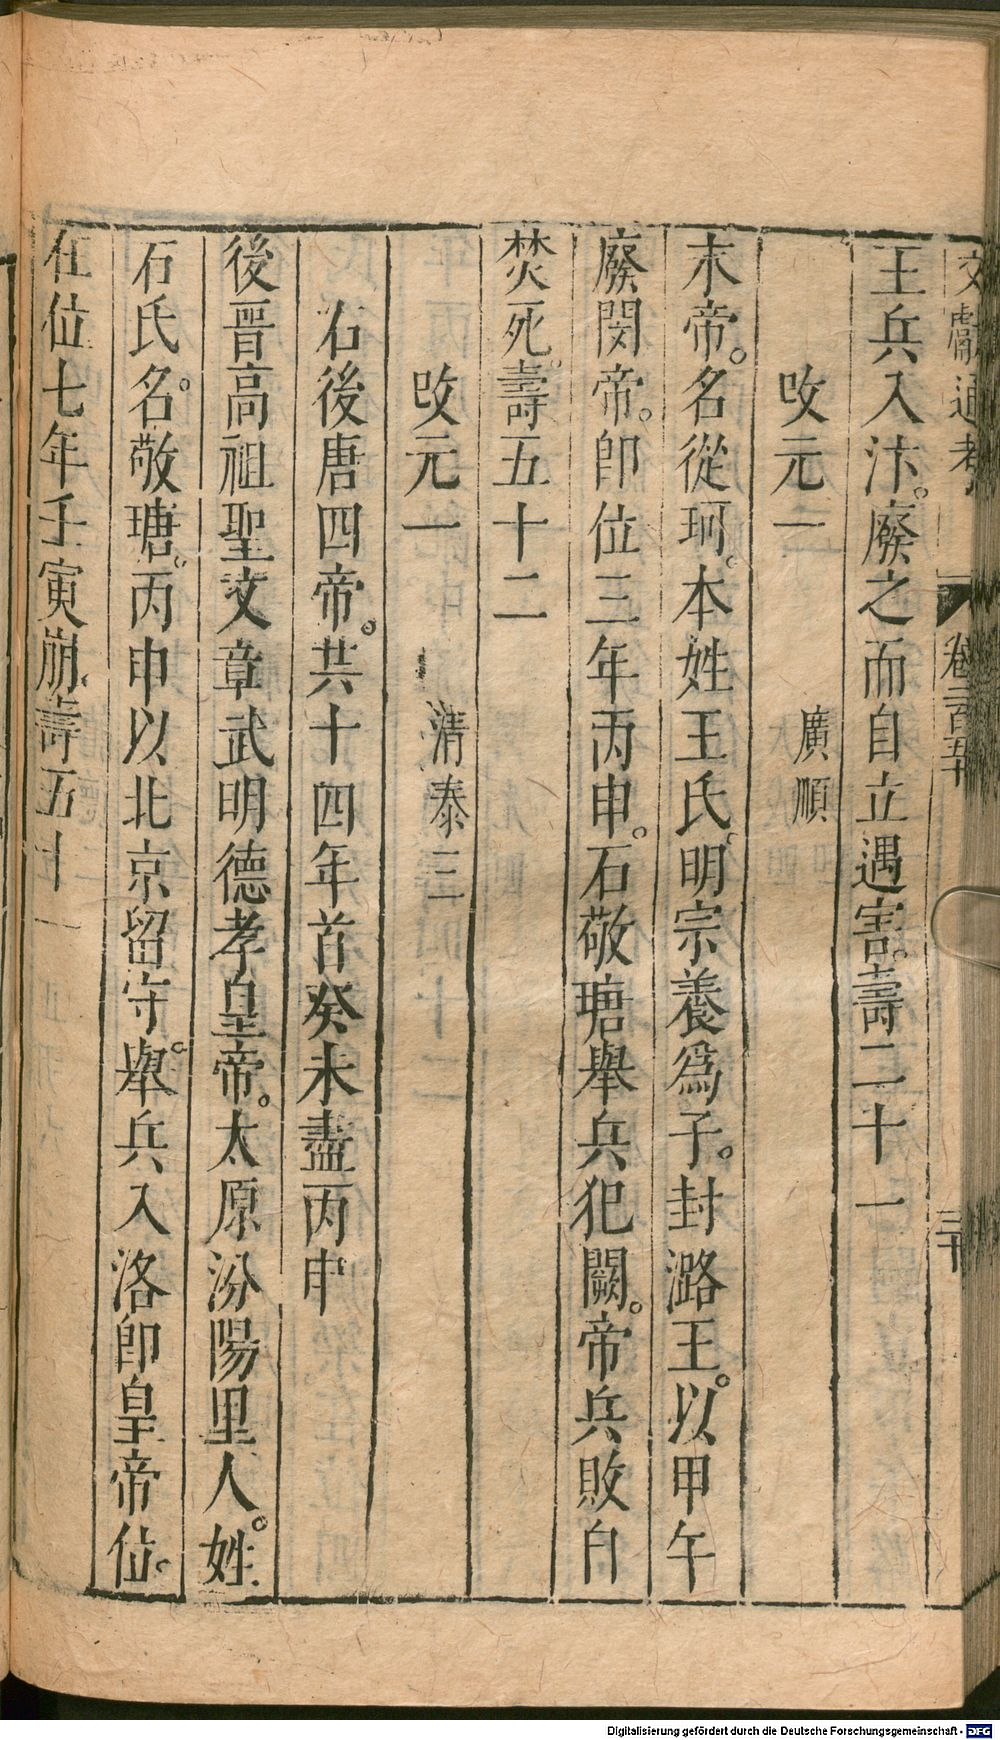 文獻通考 卷二百五十 三十
王兵入汴。廢之而自立遇害。壽二十一
改元一 廣順
末帝。名從珂。本姓王氏。明宗養爲子。封潞王。以甲午
廢閔帝。卽位三年丙申。石敬瑭舉兵犯闕。帝兵敗自
焚死。壽五十二
改元一 清泰三
右後唐四帝。共十四年首癸未盡丙申
後晉高祖聖文章武明德孝皇帝。太原汾陽里人。姓
石氏名。敬瑭。丙申以北京留守。舉兵入洛卽皇帝位。
在位七年壬寅崩。壽五十一
Digitalisierung gefördert durch die Deutsche Forschungsgemeinschaft - DFG